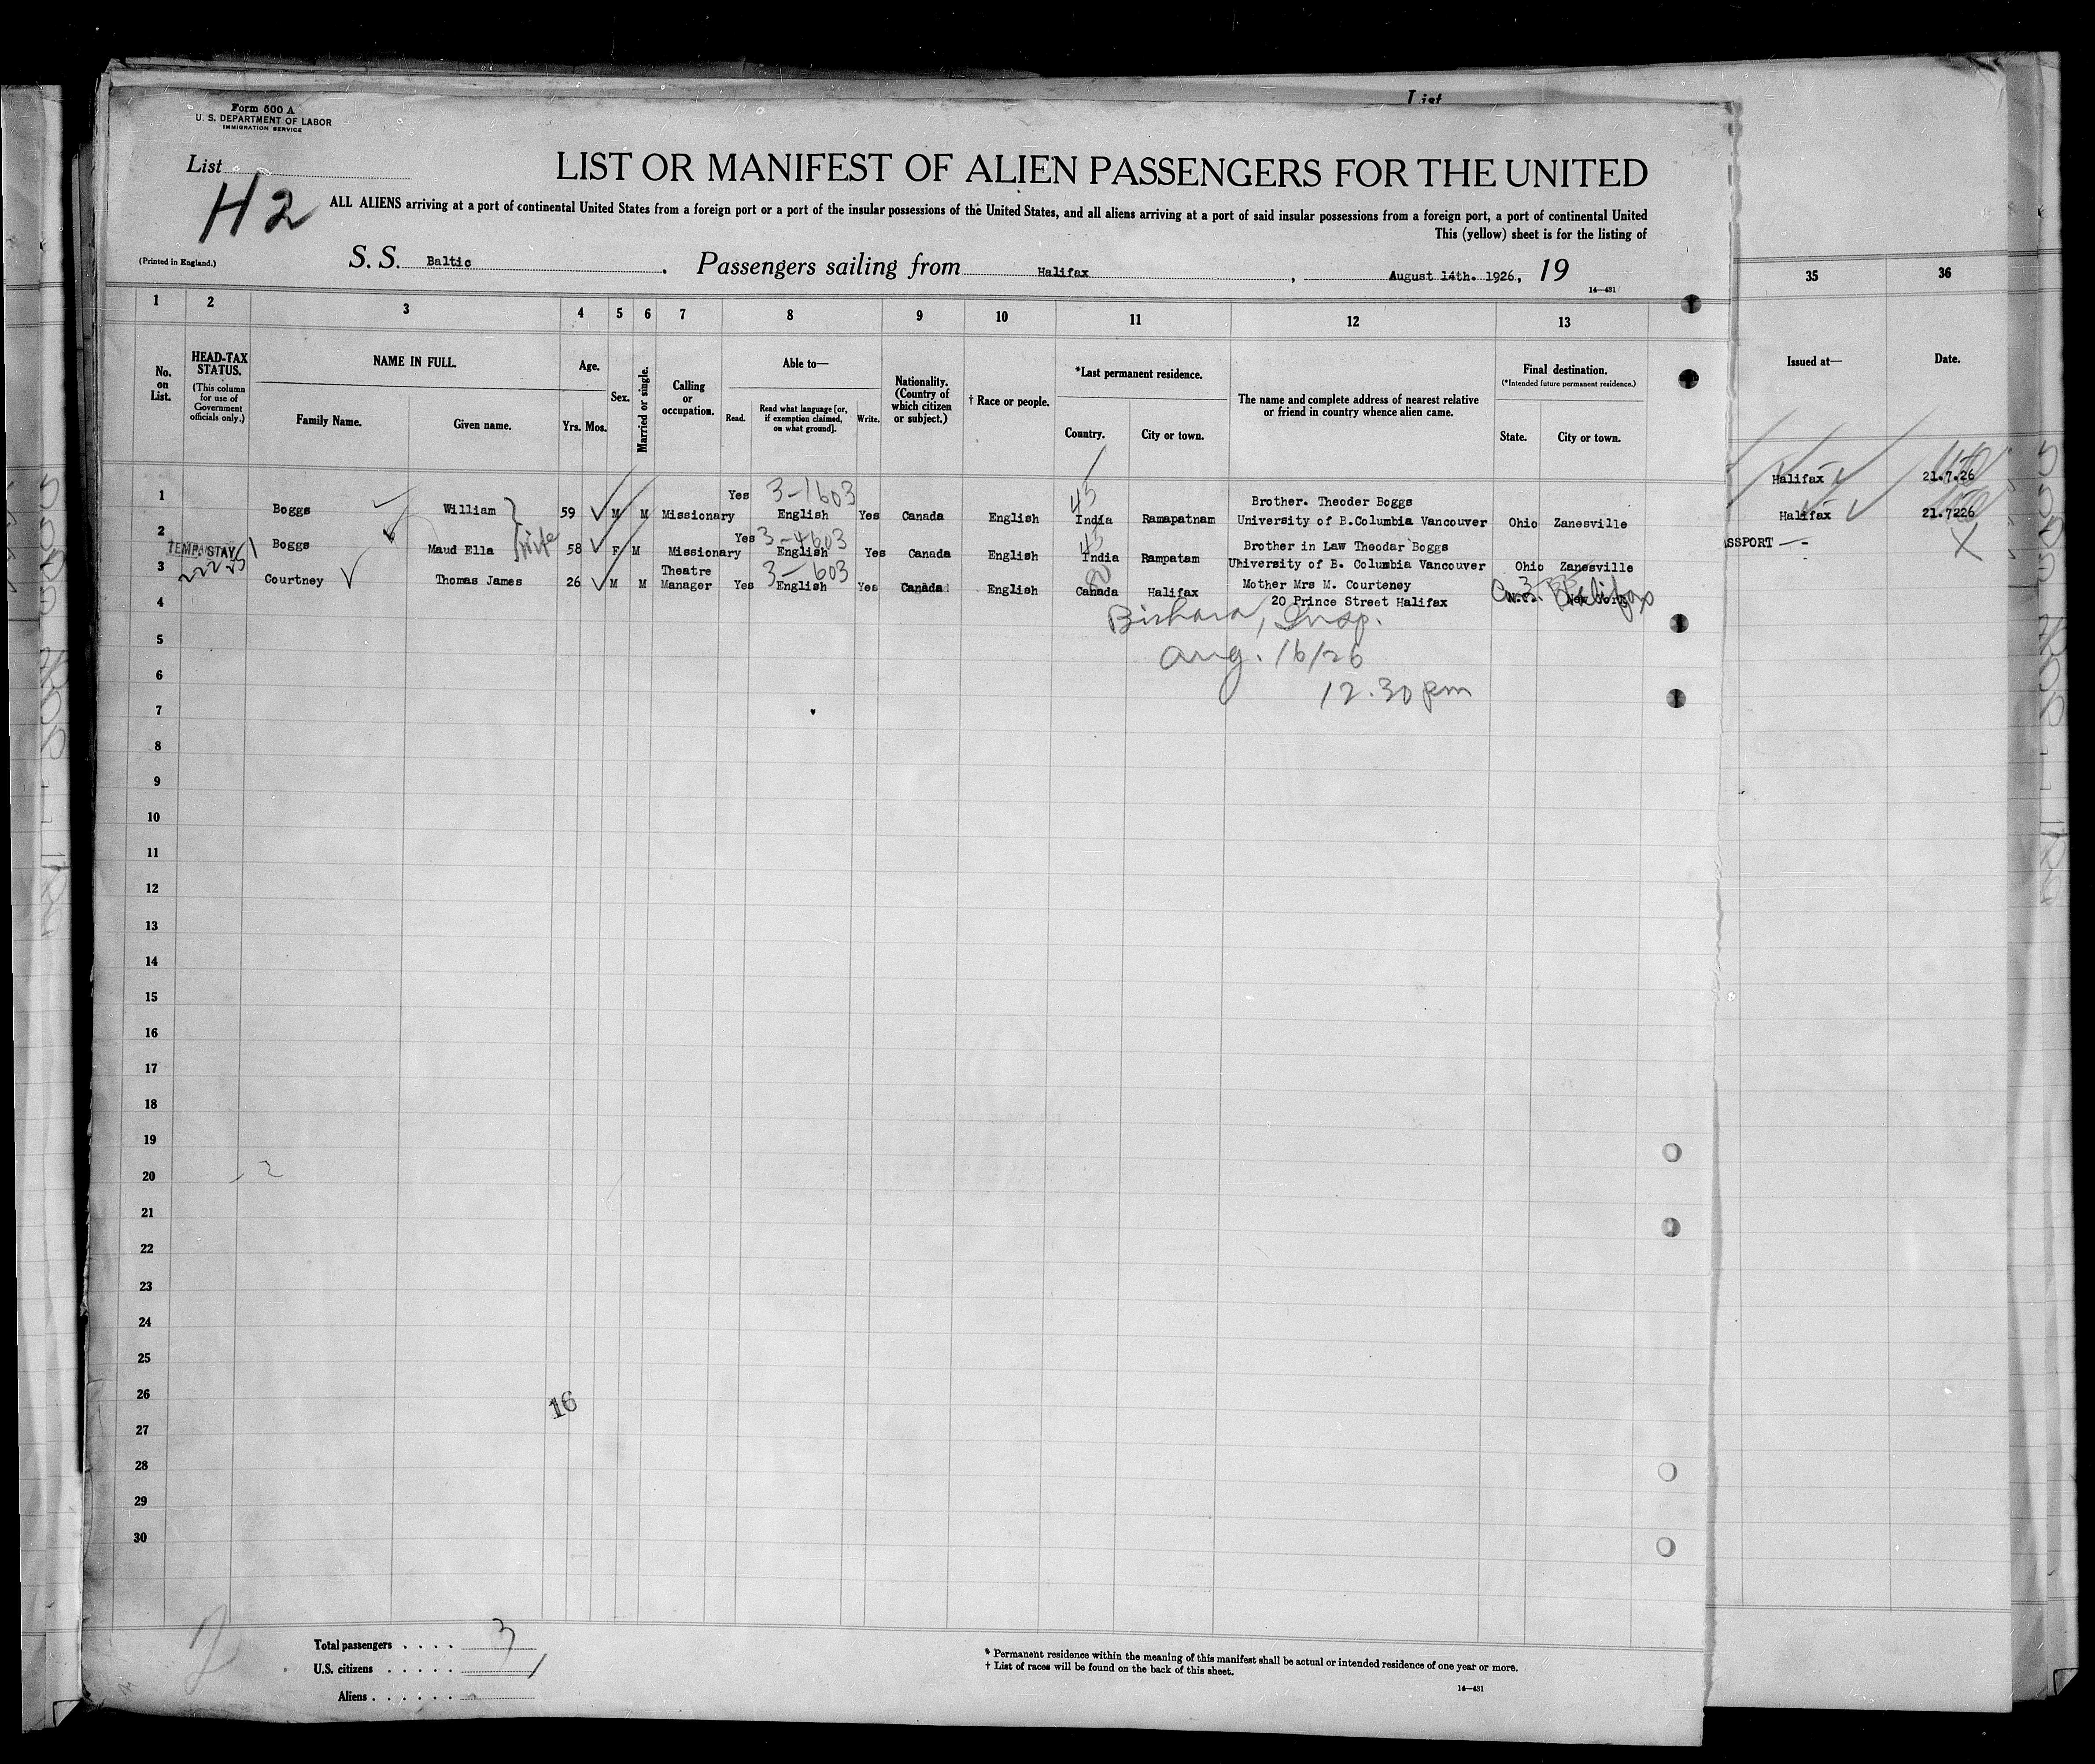 List
Form 500 A
U. S. DEPARTMENT OF LABOR
IMMIGRATION SERVICE
List
H2
LIST OR MANIFEST OF ALIEN PASSENGERS FOR THE UNITED
ALL ALIENS arriving at a port of continental United States from a foreign port or a port of the insular possessions of the United States, and all aliens arriving at a port of said insular possessions from a foreign port, a port of continental United
This (yellow) sheet is for the listing of
(Printed in England.)
S. S. Baltic. Passengers sailing from Halifax, August 14th. 1926., 19
14—431
1 2 3 4 5 6 7 8 9 10 11 12 13 35 36
No. on List.
HEAD-TAX STATUS.
(This column for use of Government officials only.)
NAME IN FULL.
Family Name. Given name.
Age.
Yrs. Mos.
Sex.
Married or single.
Calling or occupation.
Able to—
Read. Read what language [or, if exemption claimed, on what ground]. Write.
Nationality. (Country of which citizen or subject.)
† Race or people.
*Last permanent residence.
Country. City or town.
The name and complete address of nearest relative or friend in country whence alien came.
Final destination.
(*Intended future permanent residence.)
State. City or town.
Issued at— Date.
1 Boggs William 59 M M Missionary Yes 3-1603 English Yes Canada English 45 India Ramapatnam Brother. Theoder Boggs
University of B.Columbia Vancouver Ohio Zanesville Halifax 21.7.26
2 Boggs Maud Ella wife 58 F M Missionary Yes 3-4603 English Yes Canada English 45 India Rampatam Brother in Law Theodar Boggs
University of B. Columbia Vancouver Ohio Zanesville Halifax 21.7226
TEMP. STAY
3 Courtney Thomas James 26 M M Theatre Manager Yes 3- 603 English Yes Canada English Canada Halifax Mother Mrs M. Courteney
20 Prince Street Halifax Halifax
SSPORT — - X
Bishara, Insp.
Aug. 16/26
12.30 pm
4
5
6
7
8
9
10
11
12
13
14
15
16
17
18
19
20
21
22
23
24
25
26
16
27
28
29
30
2
Total passengers . . . . 3
U.S. citizens . . . . .
Aliens . . . . . .
* Permanent residence within the meaning of this manifest shall be actual or intended residence of one year or more.
† List of races will be found on the back of this sheet.
14—431